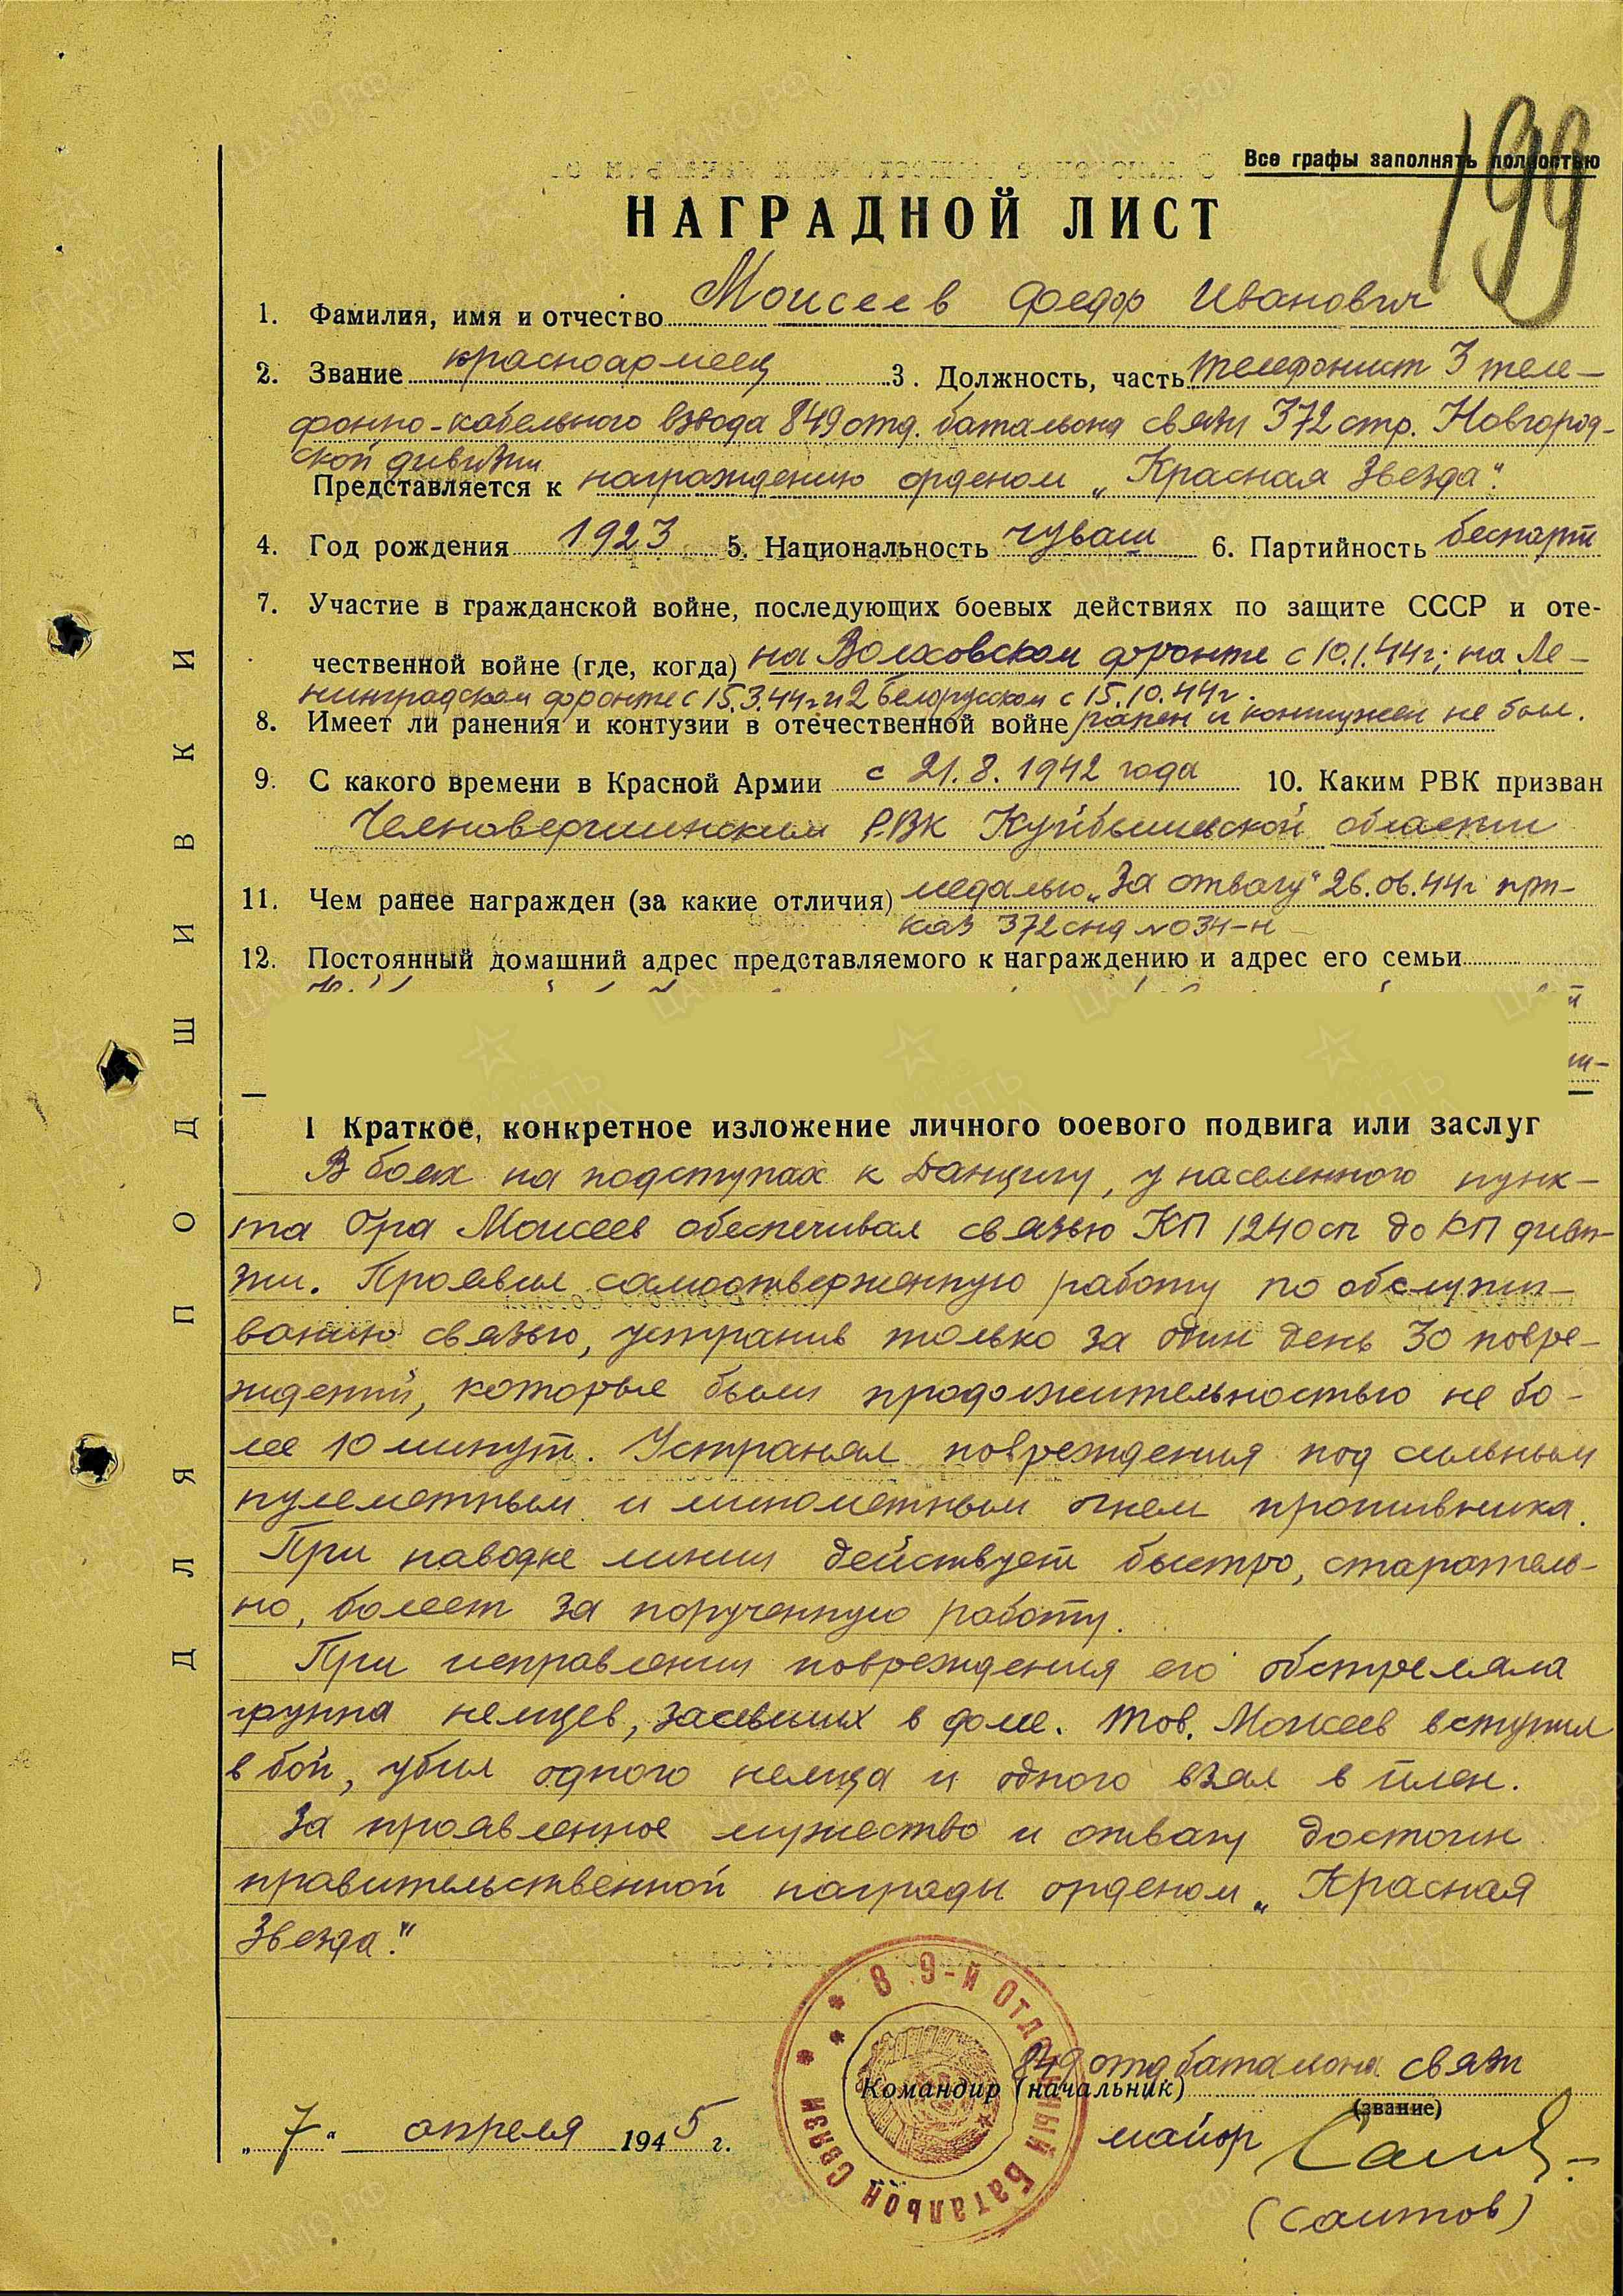 199
Все графы заполнять полностью
НАГРАДНОЙ ЛИСТ
1. Фамилия, имя и отчество Моисеев Федор Иванович
2. Звание красноармеец 3. Должность, часть телефонист 3 теле-
фонно-кабельного взвода 849 отд. батальона связи 372 стр. Новгород-
ской дивизии
Представляется к награждению орденом „Красная Звезда“.
4. Год рождения 1923 5. Национальность чуваш 6. Партийность беспарт
7. Участие в гражданской войне, последующих боевых действиях по защите СССР и оте-
чественной войне (где, когда) на Волховском фронте с 10.1.44г; на Ле-
нинградском фронте с 15.3.44г и 2 белорусском с 15.10.44г.
8. Имеет ли ранения и контузии в отечественной войне ранен и контужен не был.
9. С какого времени в Красной Армии с 21.8.1942 года 10. Каким РВК призван
Челновершинским РВК Куйбышевской области
11. Чем ранее награжден (за какие отличия) медалью „За отвагу“ 26.06.44г при-
каз 372 снд №034-н
12. Постоянный домашний адрес представляемого к награждению и адрес его семьи
I Краткое, конкретное изложение личного боевого подвига или заслуг
В боях на подступах к Данцигу, у населенного пунк-
та Ора Моисеев обеспечивал связью КП 1240 сп до КП диви-
зии. Проявил самоотверженную работу по обслужи-
ванию связью, устранив только за один день 30 повре-
ждений, которые были продолжительностью не бо-
лее 10 минут. Устранял повреждения под сильным
пулеметным и минометным огнем противника.
При наводке линии действует быстро, старатель-
но, болеет за порученную работу.
При исправлении повреждения его обстреляла
группа немцев, засевших в доме. Тов. Моисеев вступил
в бой, убил одного немца и одного взял в плен.
За проявленное мужество и отвагу достоин
правительственной награды орденом „Красная
Звезда“.
8 9-й Отдельный Батальон Связи
849 отд батальона связи
Командир (начальник)
(звание)
„7“ апреля 1945 г.
майор
(Саитов)
ДЛЯ ПОДШИВКИ